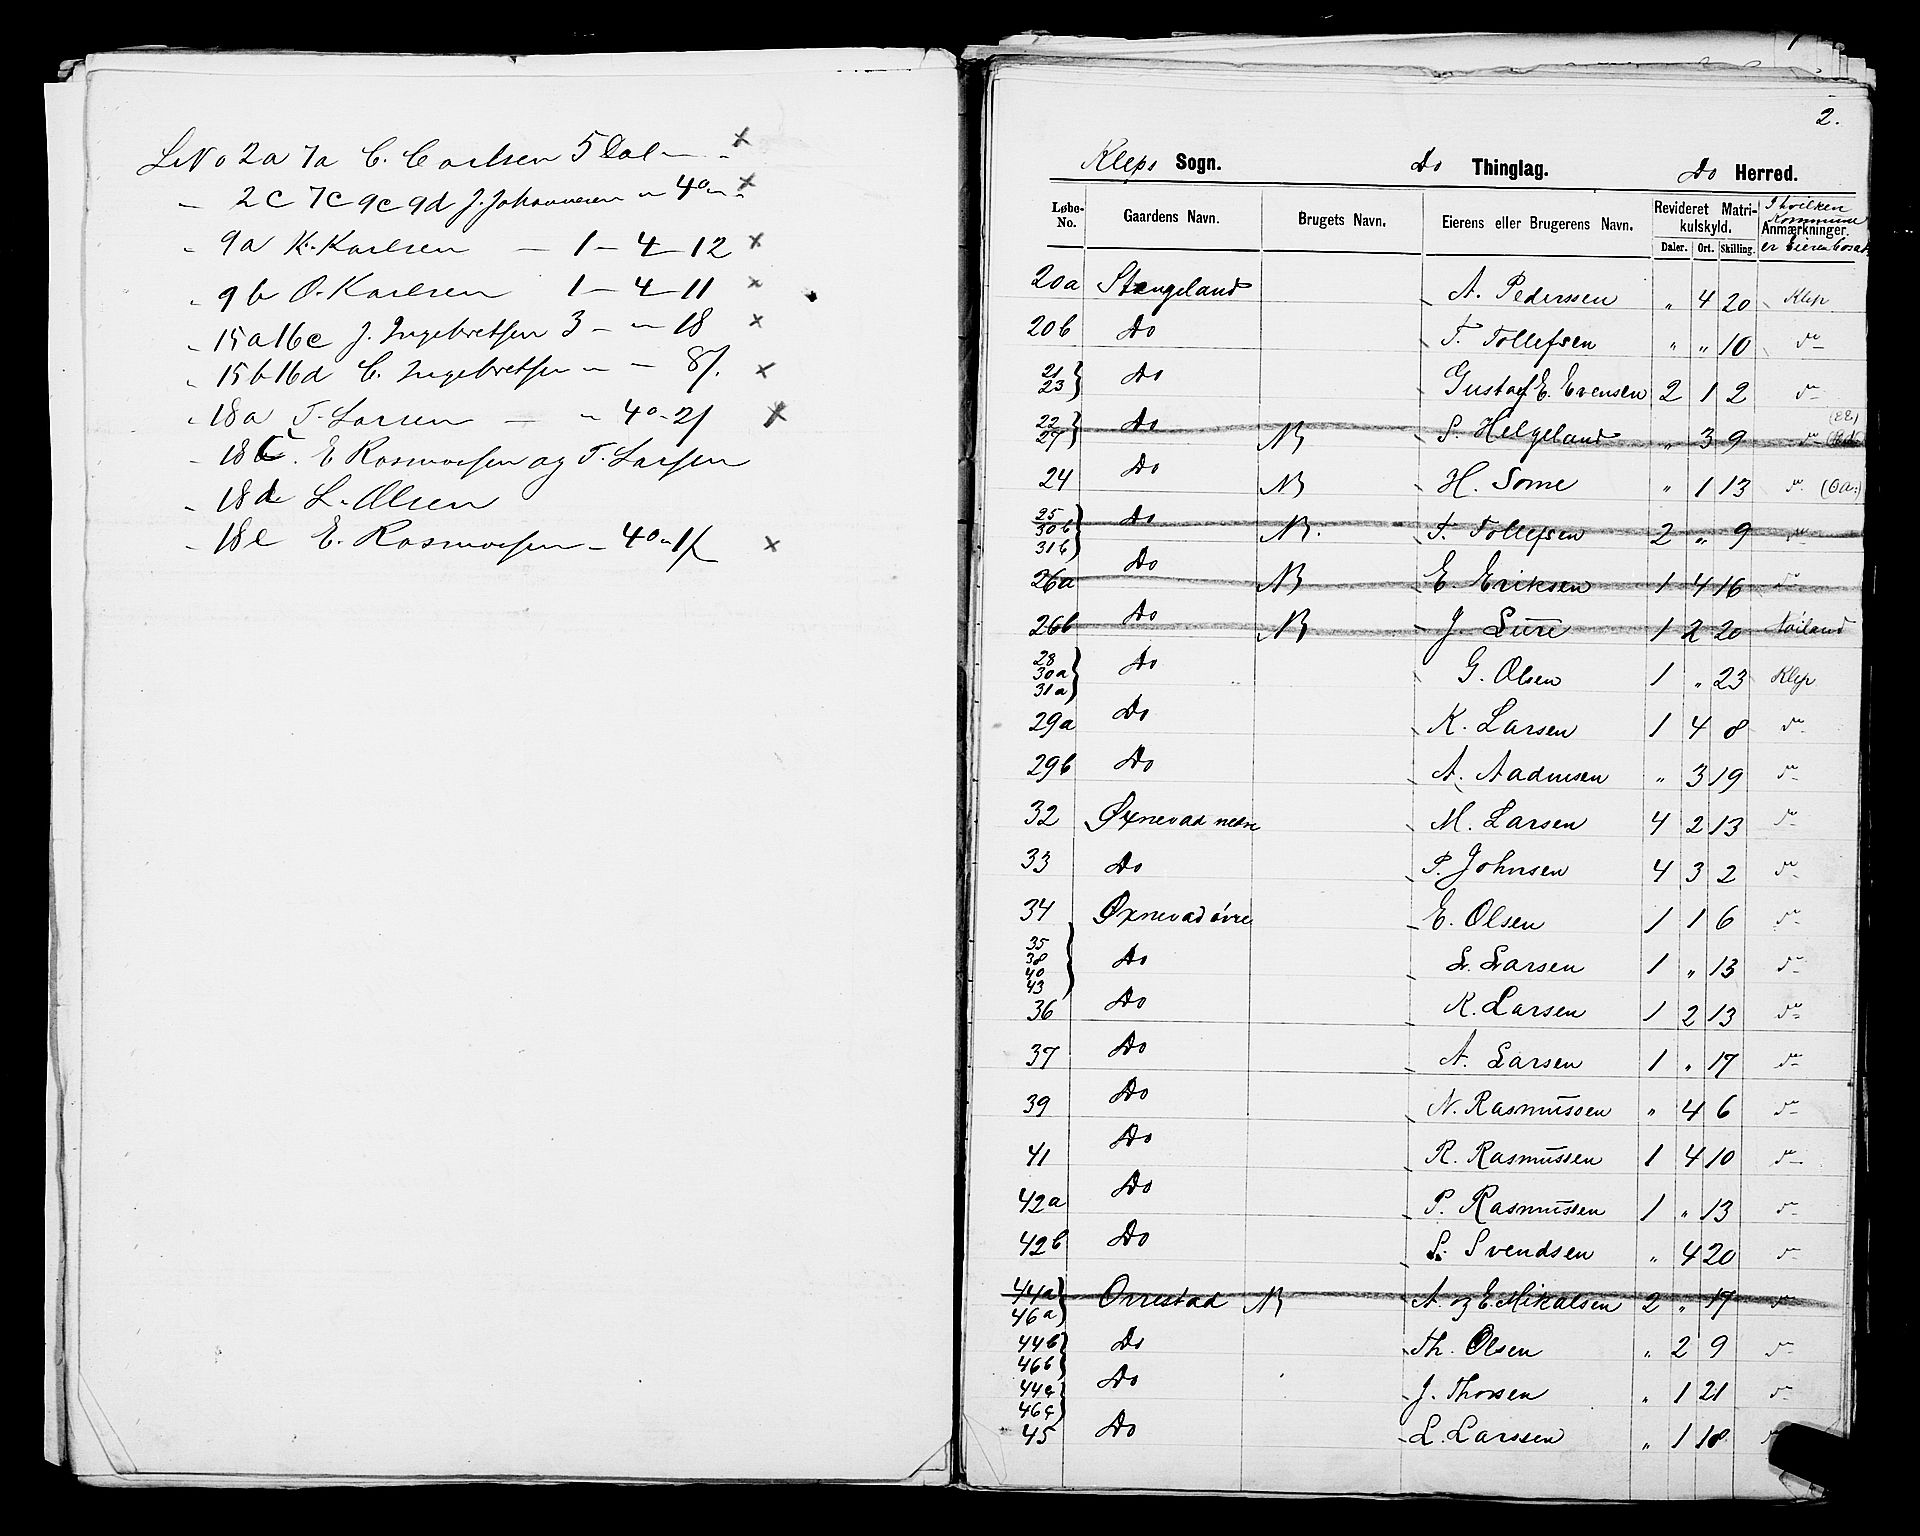 LNo 2a 7a C. Carlsen 5 Dal — „ x
— 2c 7c 9c 9d J. Johannesen — 4 o — „ x
„ 9a K. Karlsen — 1 — 4 — 12 x
„ 9b O. Karlsen 1 — 4 — 11 x
„ 15a 16c J. Ingebretsen 3 — „ — 18 x
„ 15b 16d C. Ingebretsen — „ — 8 x
„ 18a T. Larsen — „ 4 o - 21 x
„ 18c. E Rasmussen og T. Larsen
„ 18d L. Olsen
„ 18e E. Rasmussen — 4 o „ 1 x
2.
Kleps Sogn. Do Thinglag. Do Herred.
Løbe-No. Gaardens Navn. Brugets Navn. Eierens eller Brugerens Navn. Revideret Matrikulskyld. Daler. Ort. Skilling. I hvilken Kommune Anmærkninger. er Eieren bosat
20a Stangeland A. Pederssen „ 4 20 Klep
20b Do T. Tollefsen „ „ 10 do
21 23 } Do Gustav E. Evensen 2 1 2 do
22 27 } Do NB S. Helgeland „ 3 9 do (EE)
24 Do NB H. Some „ 1 13 do (Oa:)
25 30b 31b } Do NB. T. Tollefsen 2 „ 9 do
26a Do NB E. Eriksen 1 4 16 do
26b Do NB J. Lure 1 2 20 Høiland
28 30a 31a } Do G. Olsen 1 „ 23 Klep
29a Do K. Larsen 1 4 8 do
29b Do A. Aadnesen „ 3 19 do
32 Øxnevad nedre M. Larsen 4 2 13 do
33 Do P. Johnsen 4 3 2 do
34 Øxnevad övre E. Olsen 1 1 6 do
35 38 40 43 } Do L. Larsen 1 „ 13 do
36 Do K. Larsen 1 2 13 do
37 Do A. Larsen 1 „ 17 do
39 Do N. Rasmussen „ 4 6 do
41 Do R. Rasmussen 1 4 10 do
42a Do P. Rasmussen 1 „ 13 do
42b Do S. Svendsen „ 4 20 do
44a 46a } Orrestad NB A. og E. Mikalsen 2 „ 17 do
44b 46b } Do Th. Olsen „ 2 9 do
44c 46c } Do J. Thorsen „ 1 21 do
45 Do L. Larssen „ 1 18